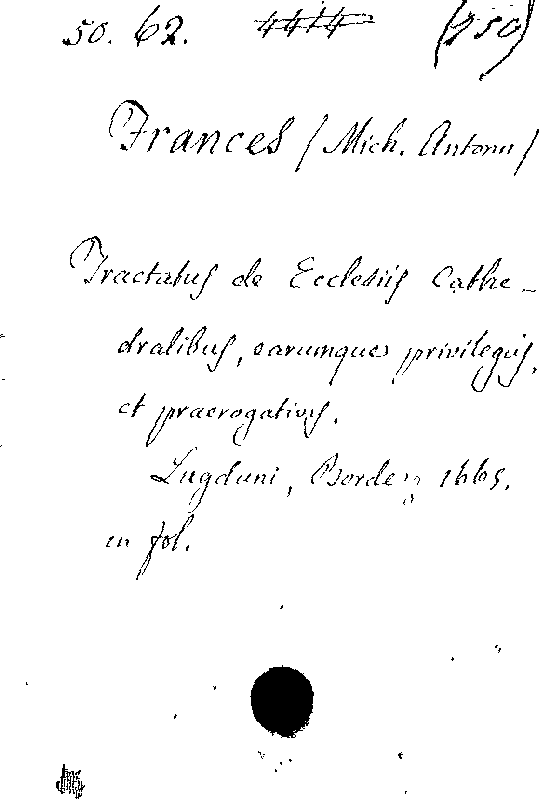 50. 62. 4414 (750)
Frances / Mich. Antonii /
Tractatus de Ecclesiis Cathe-
dralibus, earumque privilegiis,
et praerogativis.
Lugduni, Borde, 1665.
in fol.